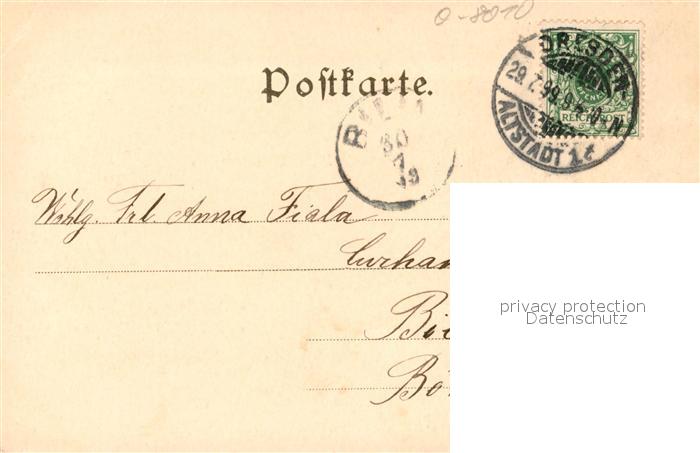 0-8010
Postkarte.
DRESDEN
29.7.99.
ALTSTADT 1.
REICHSPOST
30
7
Wohlg. Frl. Anna Fiala
Curha
privacy protection
Datenschutz
Bi
Bö